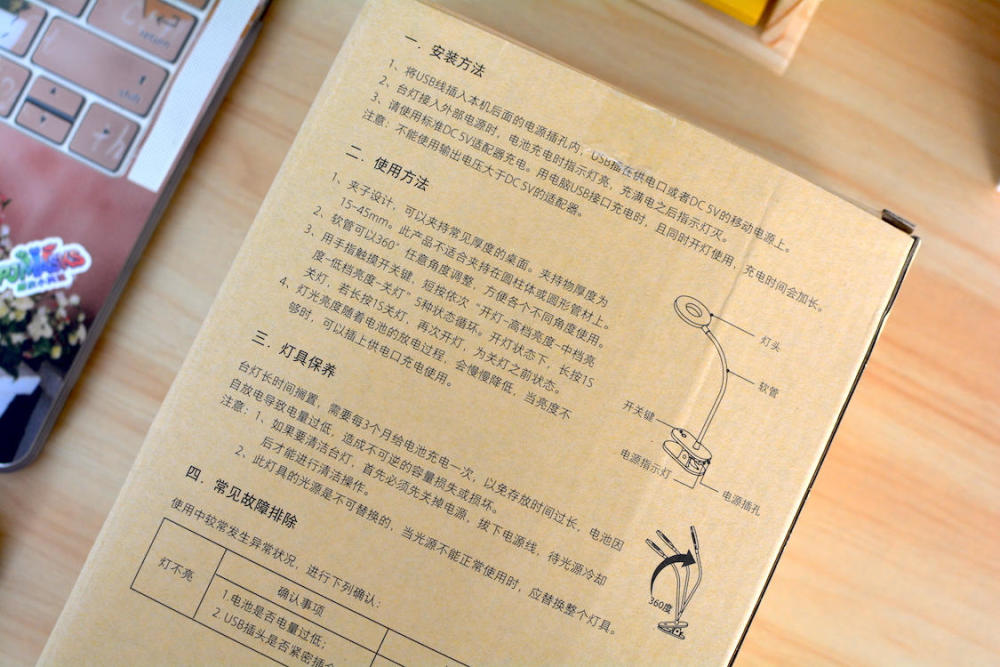 return
shift
一. 安装方法
1、将USB线插入本机后面的电源插孔内，USB插在供电口或者DC 5V的移动电源上。
2、台灯接入外部电源时，电池充电时指示灯亮，充满电之后指示灯灭。
3、请使用标准DC 5V适配器充电。用电脑USB接口充电时，且同时开灯使用，充电时间会加长。
注意：不能使用输出电压大于DC 5V的适配器。
二. 使用方法
1、夹子设计，可以夹持常见厚度的桌面。夹持物厚度为
15-45mm。此产品不适合夹持在圆柱体或圆形管材上。
2、软管可以360°任意角度调整，方便各个不同角度使用。
3、用手指触摸开关键，短按依次“开灯-高档亮度-中档亮
度-低档亮度-关灯”5种状态循环。开灯状态下，长按1S
关灯，若长按1S关灯，再次开灯，为关灯之前状态。
4、灯光亮度随着电池的放电过程，会慢慢降低，当亮度不
够时，可以插上供电口充电使用。
灯头
软管
开关键
电源指示灯
电源插孔
三. 灯具保养
台灯长时间搁置，需要每3个月给电池充电一次，以免存放时间过长，电池因
自放电导致电量过低，造成不可逆的容量损失或损坏。
注意：1、如果要清洁台灯，首先必须先关掉电源，拔下电源线，待光源冷却
后才能进行清洁操作。
2、此灯具的光源是不可替换的，当光源不能正常使用时，应替换整个灯具。
360度
四. 常见故障排除
使用中较常发生异常状况，进行下列确认：
灯不亮
确认事项
1.电池是否电量过低；
2. USB插头是否紧密插